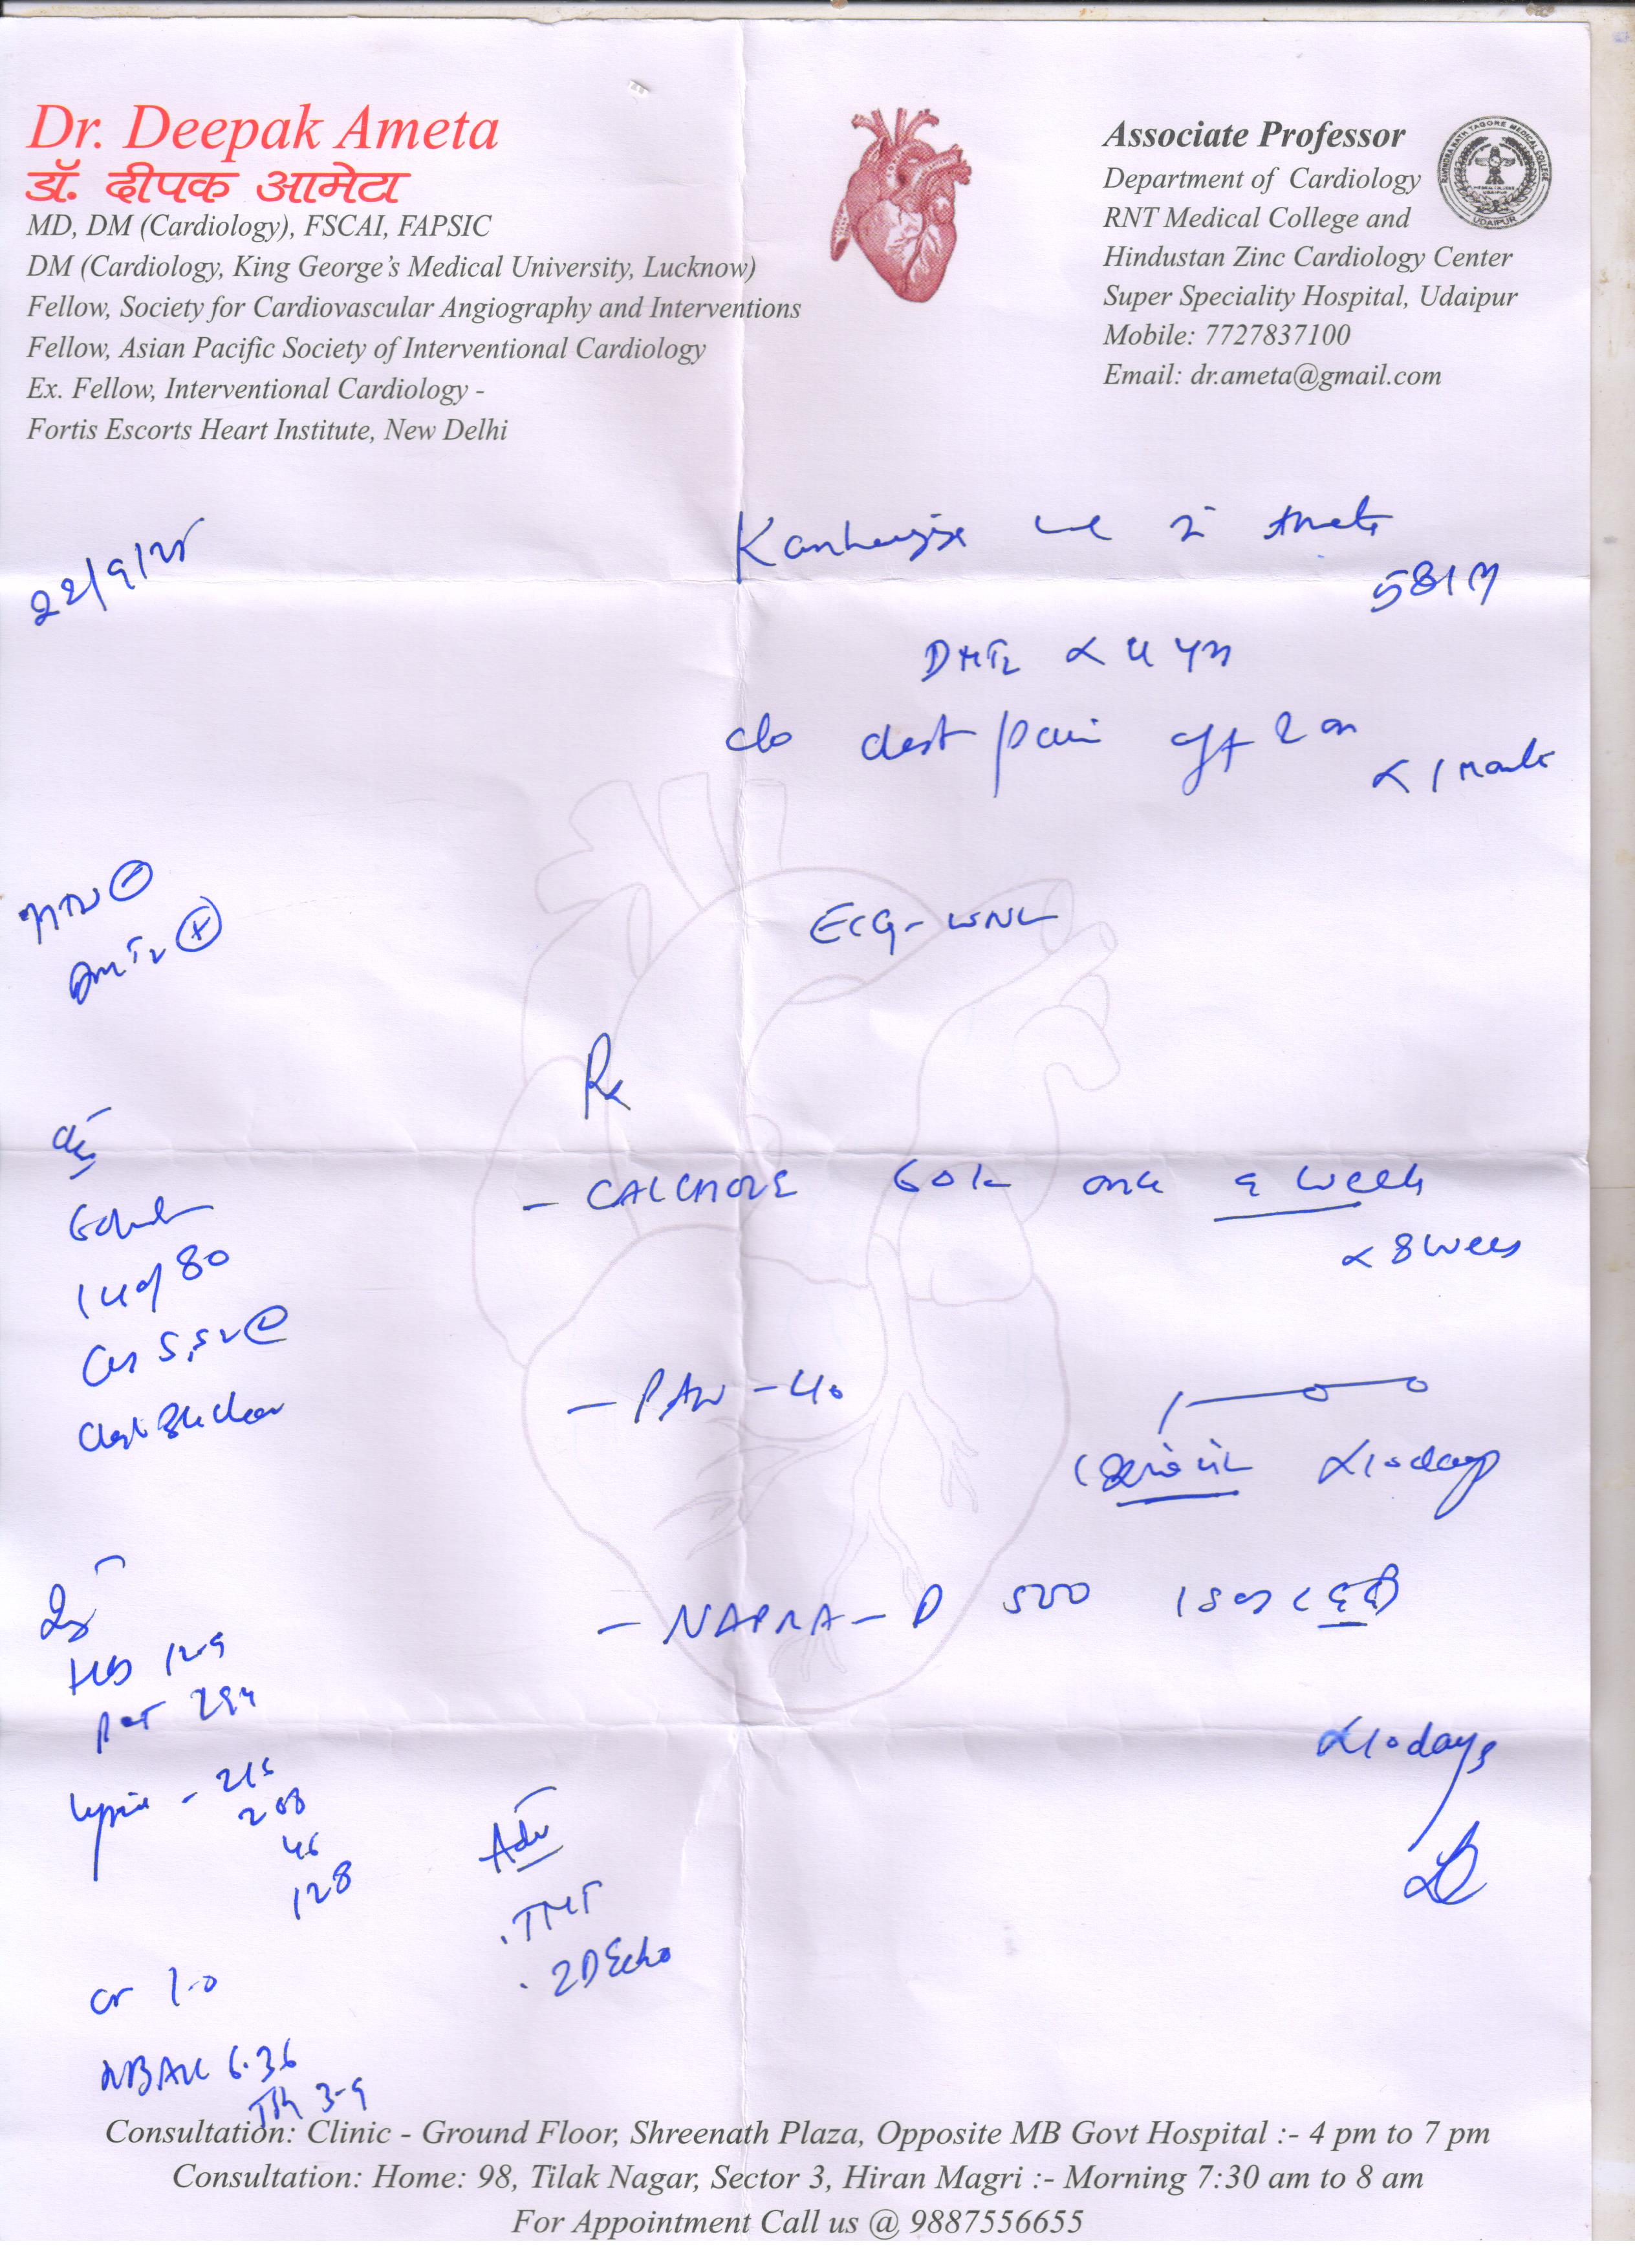 Dr. Deepak Ameta
डॉ. दीपक आमेटा
MD, DM (Cardiology), FSCAI, FAPSIC
DM (Cardiology, King George's Medical University, Lucknow)
Fellow, Society for Cardiovascular Angiography and Interventions
Fellow, Asian Pacific Society of Interventional Cardiology
Ex. Fellow, Interventional Cardiology -
Fortis Escorts Heart Institute, New Delhi
Associate Professor
Department of Cardiology
RNT Medical College and
Hindustan Zinc Cardiology Center
Super Speciality Hospital, Udaipur
Mobile: 7727837100
Email: dr.ameta@gmail.com
RAVINDRA NATH TAGORE MEDICAL COLLEGE
UDAIPUR
22/9/25
58/M
DMT2 x 4 yrs
c/o chest pain off & on
x 1 month
HTN (-)
DMT2 (+)
ECG - WNL
Rx
- CALCMORE 60k once a week
x 8 weeks
- PAN - 40
x 10 days
- NAPRA - D 500
x 10 days
80
CVS S1S2
Chest B/L clear
Hb 12.9
PLT 294
Lipid - 215
208
46
128
Cr 1.0
HBA1C 6.36
Adv
. TMT
. 2D Echo
Consultation: Clinic - Ground Floor, Shreenath Plaza, Opposite MB Govt Hospital :- 4 pm to 7 pm
Consultation: Home: 98, Tilak Nagar, Sector 3, Hiran Magri :- Morning 7:30 am to 8 am
For Appointment Call us @ 9887556655